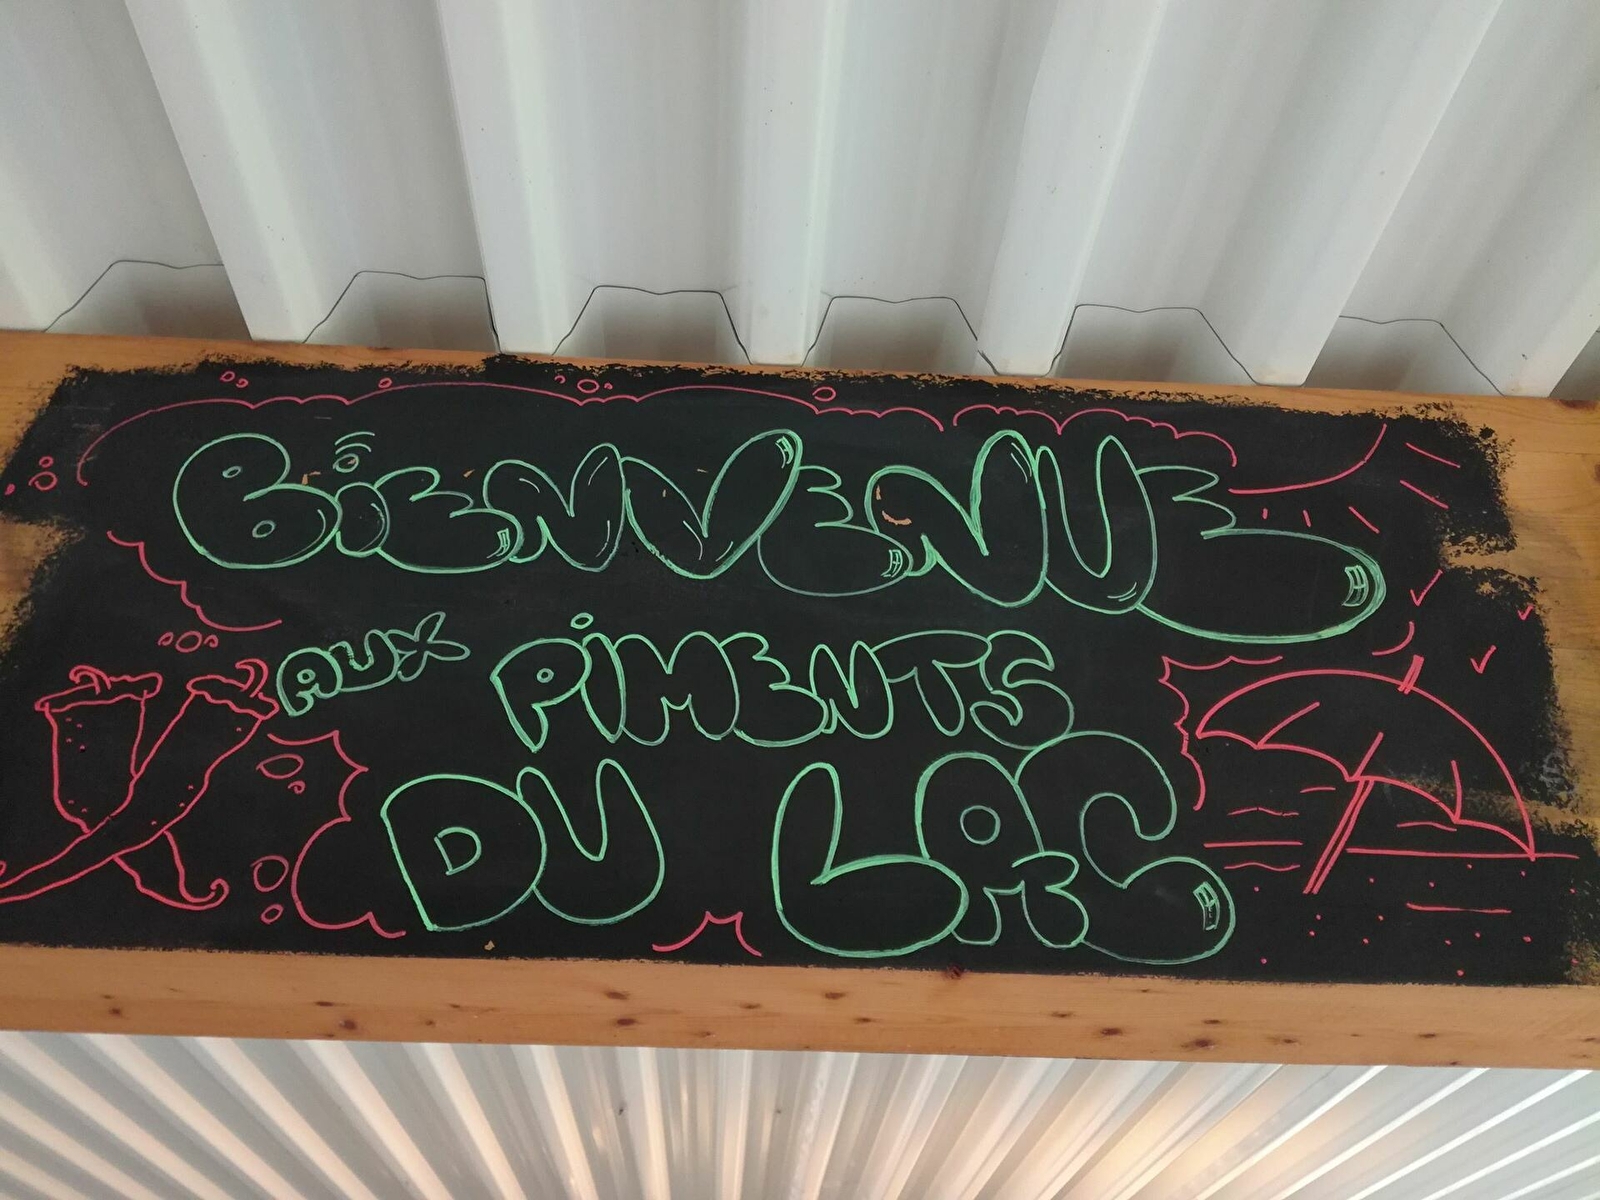 BIENVENUE
AUX PIMENTS
DU LAC